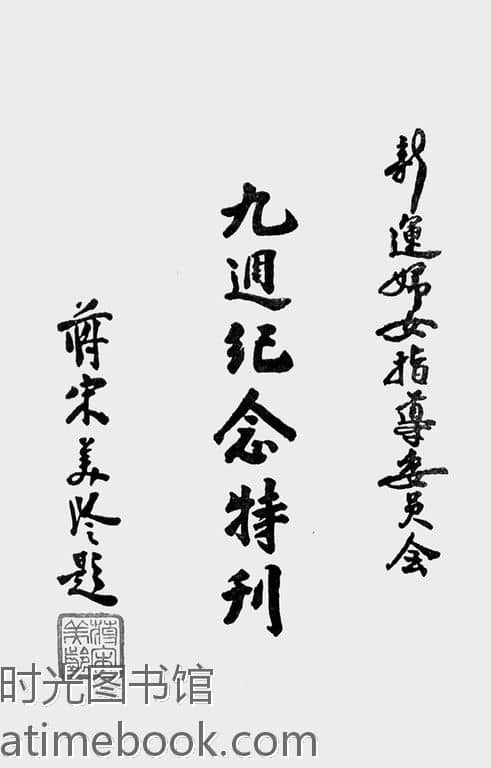 新運婦女指導委員会
九週紀念特刊
蔣宋美齡題
蔣宋
美齡
时光图书馆
atimebook.com